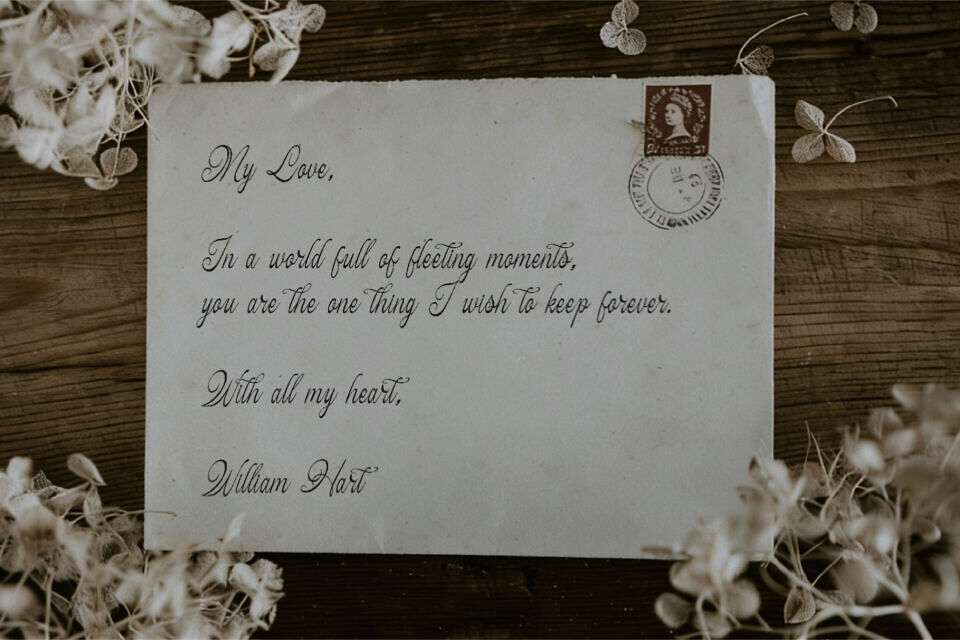 My Love,
In a world full of fleeting moments,
you are the one thing I wish to keep forever.
With all my heart,
William Hart